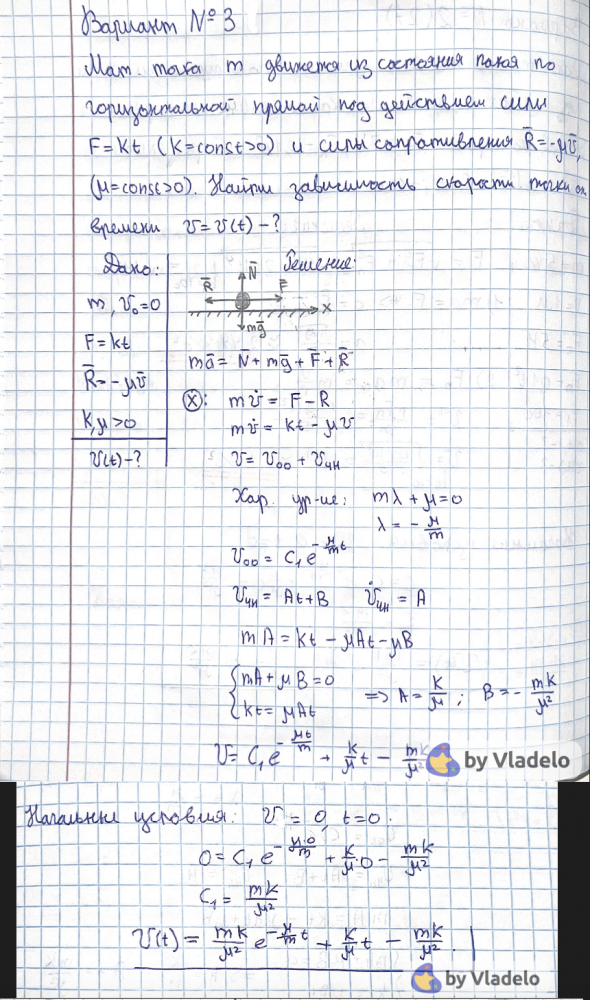 Вариант №3
Мат. точка m движется из состояния покоя по
горизонтальной прямой под действием силы
F=kt (k=const>0) и силы сопротивления R̅=-μv̅,
(μ=const>0). Найти зависимость скорости точки от
времени v=v(t)-?
Дано:
m, v₀=0
F=kt
R̅=-μv̅
k,μ>0
v(t)-?
Решение:
R̅ N̅ F̅ x
mg̅
ma̅ = N̅+mg̅+F̅+R̅
(x): mv̇ = F-R
mv̇ = kt-μv
v = v₀₀ + vчн
Хар. ур-ие: mλ+μ=0
λ = -μ/m
v₀₀ = C₁e^(-μ/m t)
vчн = At+B v̇чн = A
mA = kt-μAt-μB
{mA+μB=0
{kt=μAt => A=k/μ; B=-mk/μ²
v = C₁e^(-μt/m) + k/μ t - mk/μ²
by Vladelo
Начальные условия: v=0, t=0.
0 = C₁e^(-μ·0/m) + k/μ·0 - mk/μ²
C₁ = mk/μ²
v(t) = mk/μ² e^(-μ/m t) + k/μ t - mk/μ².
by Vladelo